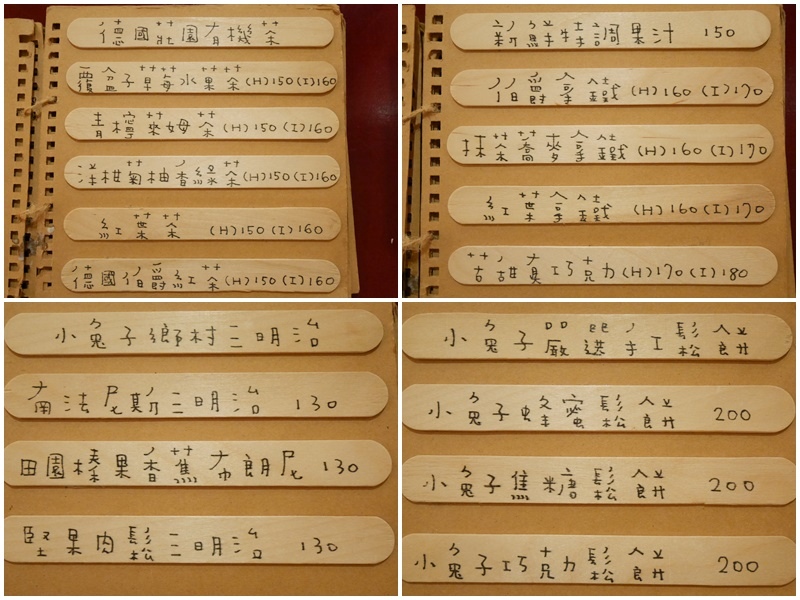 德國莊園有機茶
覆盆子莓水果茶(H)150(I)160
青檸萊姆茶(H)150(I)160
洋柑菊柚香綠茶(H)150(I)160
紅葉茶(H)150(I)160
德國伯爵紅茶(H)150(I)160
新鮮特調果汁 150
伯爵拿鐵(H)160(I)170
抹茶蕎麥拿鐵(H)160(I)170
紅葉拿鐵(H)160(I)170
苦甜真巧克力(H)170(I)180
小兔子鄉村三明治
南法尼斯三明治 130
田園榛果香蕉布朗尼 130
堅果肉鬆三明治 130
小兔子嚴選手工鬆餅
小兔子蜂蜜鬆餅 200
小兔子焦糖鬆餅 200
小兔子巧克力鬆餅 200